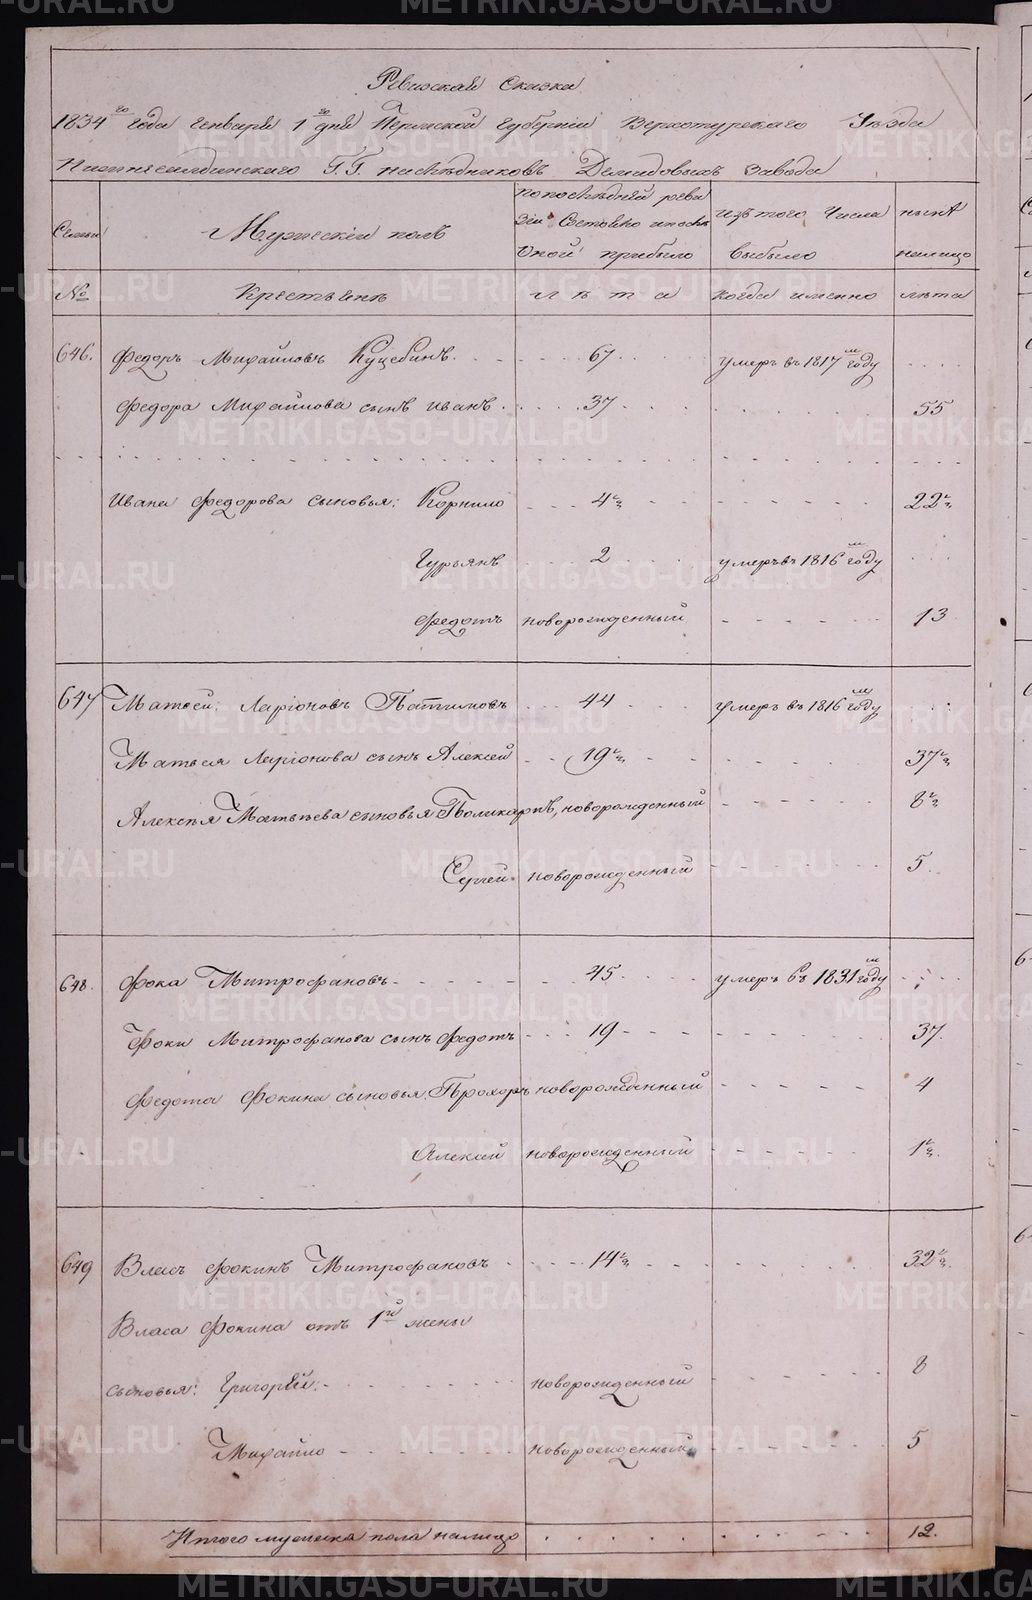 Ревизская Сказка
1834го года Генваря 1го дня Пермской Губернiи Верхотурскаго Уѣзда
Нижнесалдинскаго Г.Г. наслѣдниковъ Демидовыхъ завода
Семьи Мужескiй полъ по послѣдней реви зiи Состояло и послѣ оной прибыло изъ того Числа выбыло нынѣ налицо
№ Крестьянѣ лѣта когда именно лѣта
646. Федоръ Михайловъ Куцебинъ 67 умеръ въ 1817м году
Федора Михайлова сынъ Иванъ 37 55
Ивана Федорова сыновья: Корнило 4 ½ 22 ½
Гурьянъ 2 умеръ въ 1816м году
Федотъ новорожденный 13
647 Матвей Ларiоновъ 44 умеръ въ 1816м году
Матвея Ларiонова сынъ Алексей 19 ½ 37 ½
Алексѣя Матвѣева сыновья Поликарпъ, новорожденный 8 ½
Сергей новорожденный 5
648. Фока Митрофановъ 45 умеръ въ 1831м году
Фоки Митрофанова сынъ Федотъ 19 37
Федота Фокина сыновья Прохоръ новорожденный 4
Алексей новорожденный 1 ½
649 Власъ Фокинъ Митрофановъ 14 ½ 32 ½
Власа Фокина отъ 1й жены
сыновья: Григорей новорожденный 8
Михайло новорожденный 5
Итого мужеска пола налицо 12.
METRIKI.GASO-URAL.RU